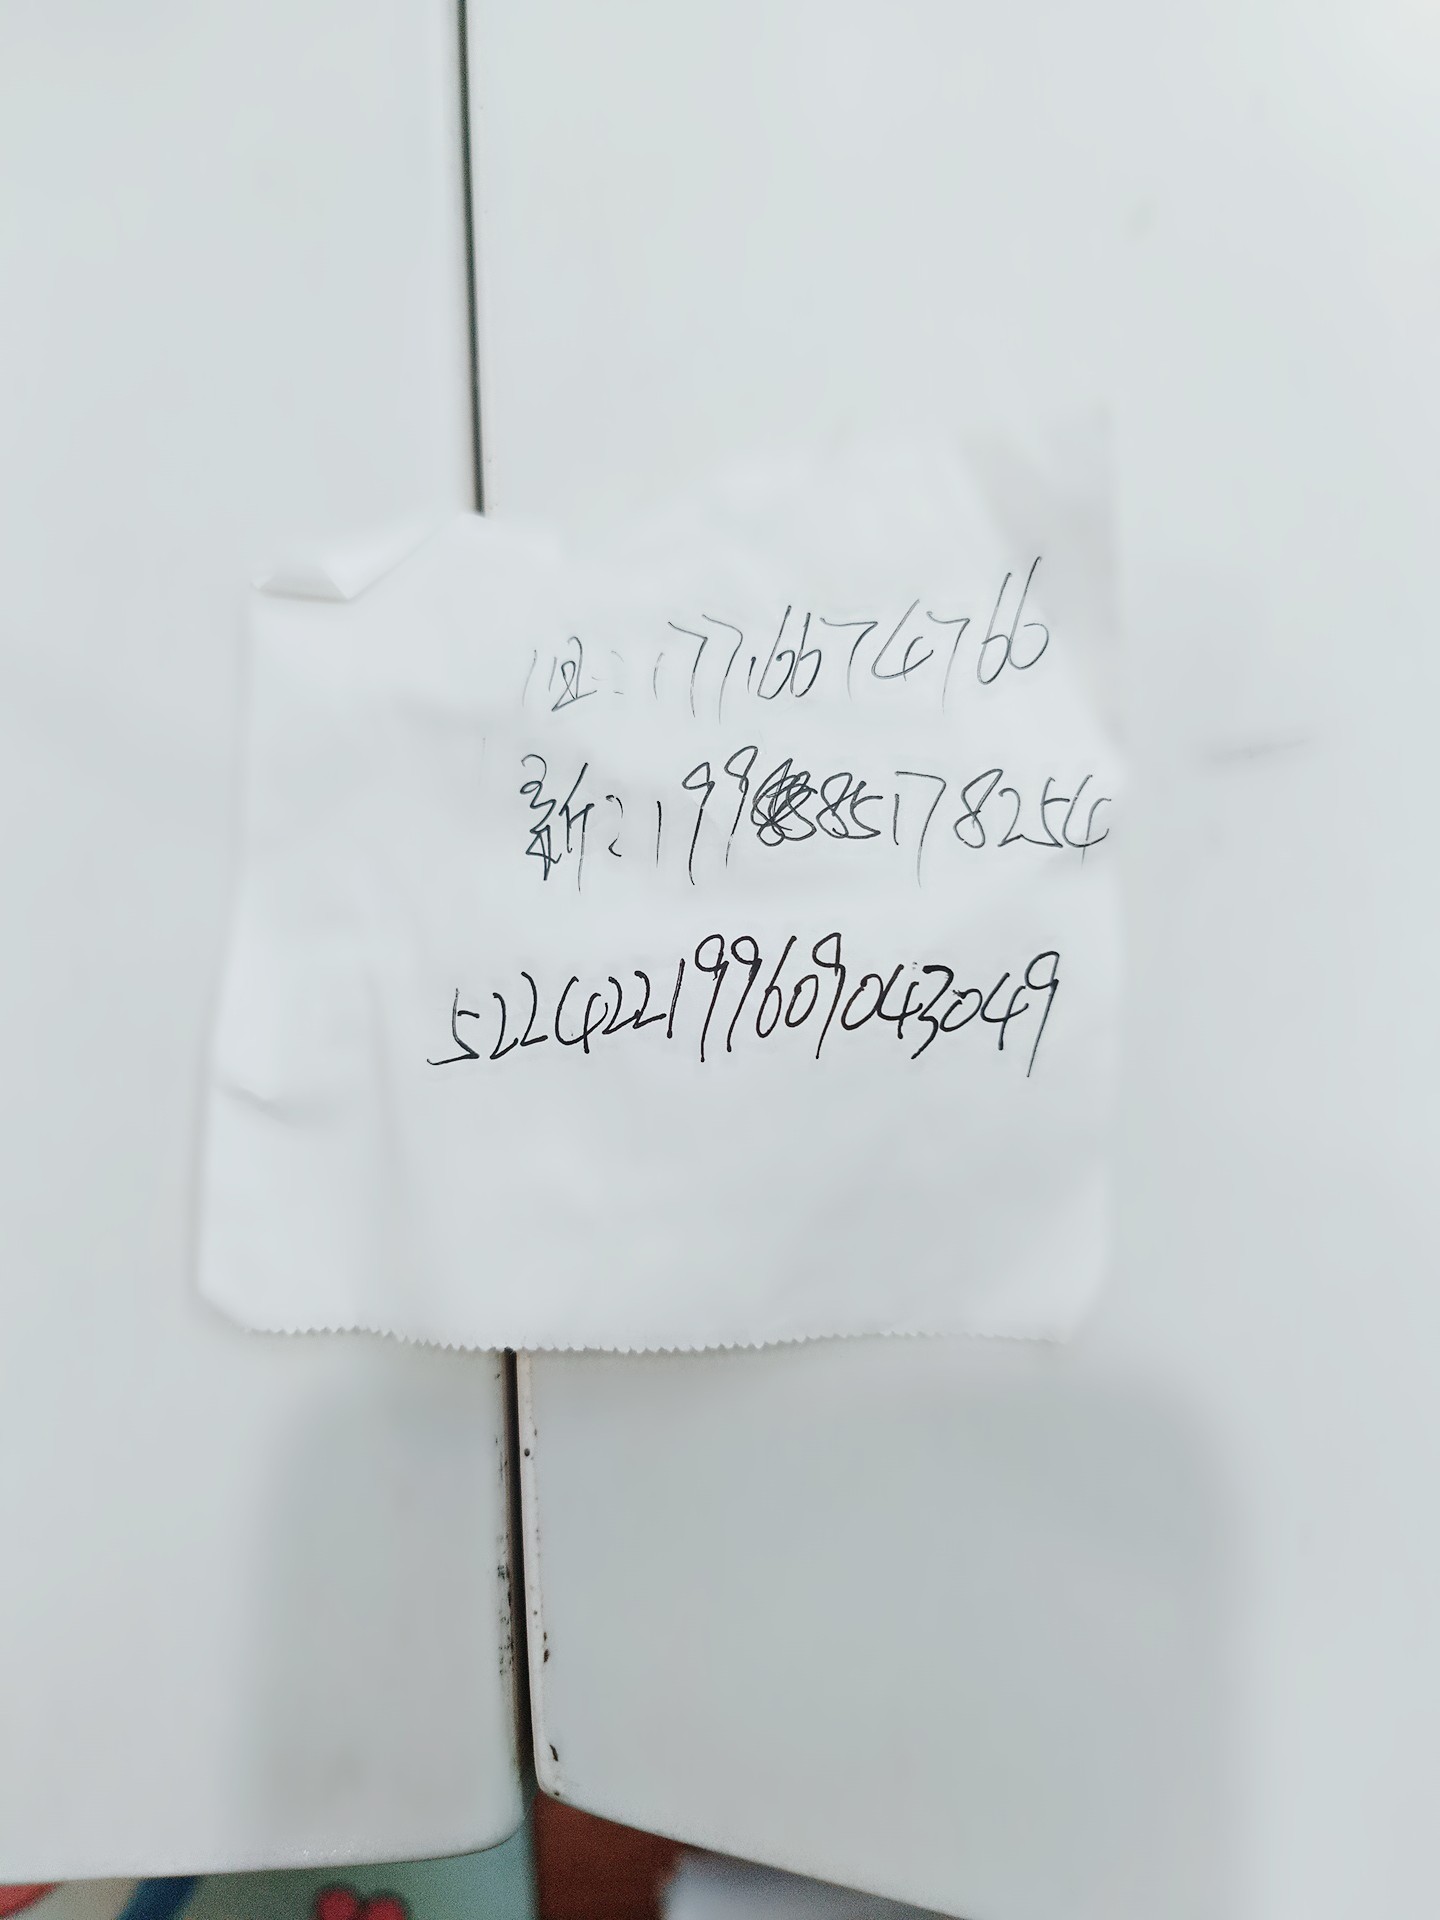 旧:17716674766
新:19985178254
522422199609043049